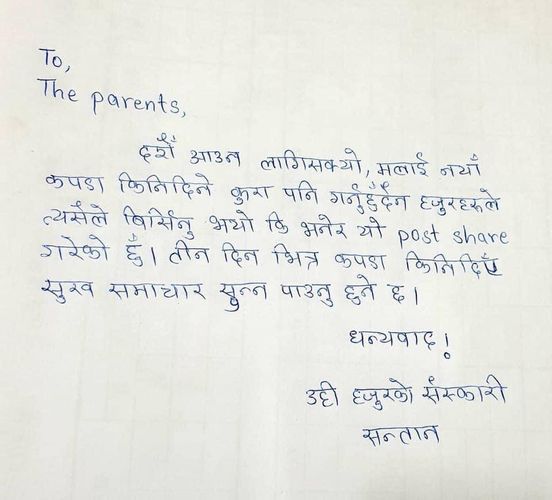 To,
The parents,
दशैँ आउन लागिसक्यो, मलाई नयाँ
कपडा किनिदिने कुरा पनि गर्नुहुँदैन हजुरहरुले
त्यसैले बिर्सिनु भयो कि भनेर यो post share
गरेको हुँ। तीन दिन भित्र कपडा किनिदिएँ
सुख समाचार सुन्न पाउनु हुने छ।
धन्यवाद!
उही हजुरको सँस्कारी
सन्तान